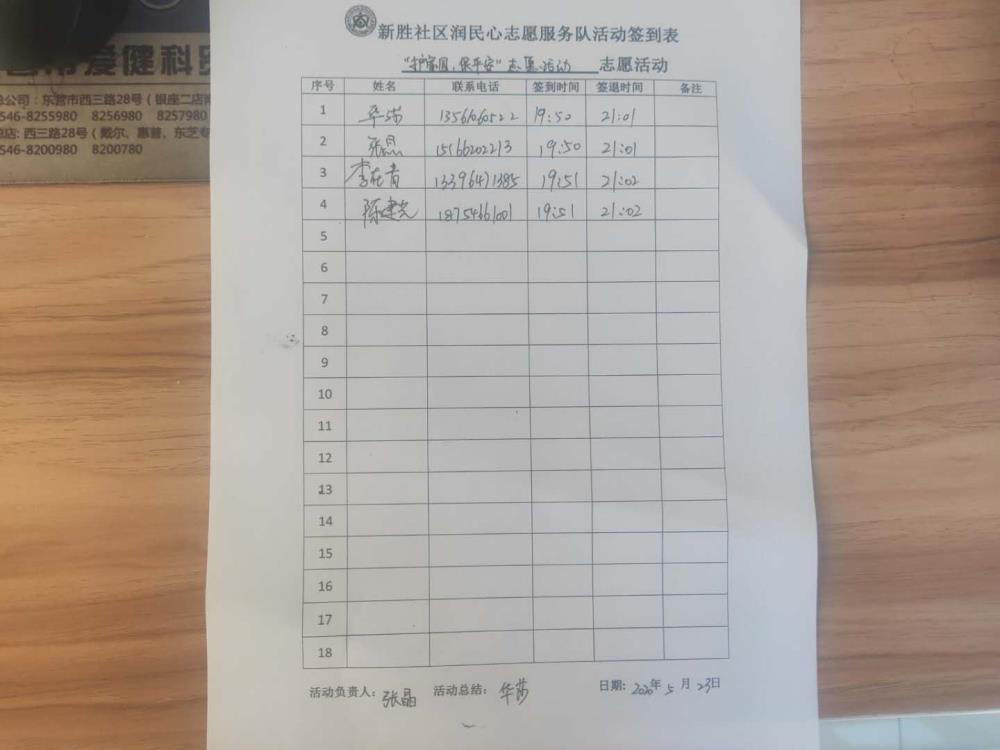 爱健科
总公司：东营市西三路28号（银座二店
546-8255980 8256980 8257980
店: 西三路28号（戴尔、惠普、东芝专
546-8200980 8200780
新胜社区润民心志愿服务队活动签到表
“护家园，保平安”志愿活动 志愿活动
序号 姓名 联系电话 签到时间 签退时间 备注
1 华莎 13561060522 19:50 21:01
2 张晶 15166202213 19:50 21:01
3 13396471385 19:51 21:02
4 陈建 18754661001 19:51 21:02
5
6
7
8
9
10
11
12
13
14
15
16
17
18
活动负责人：张晶 活动总结：华莎 日期: 2020年5月23日